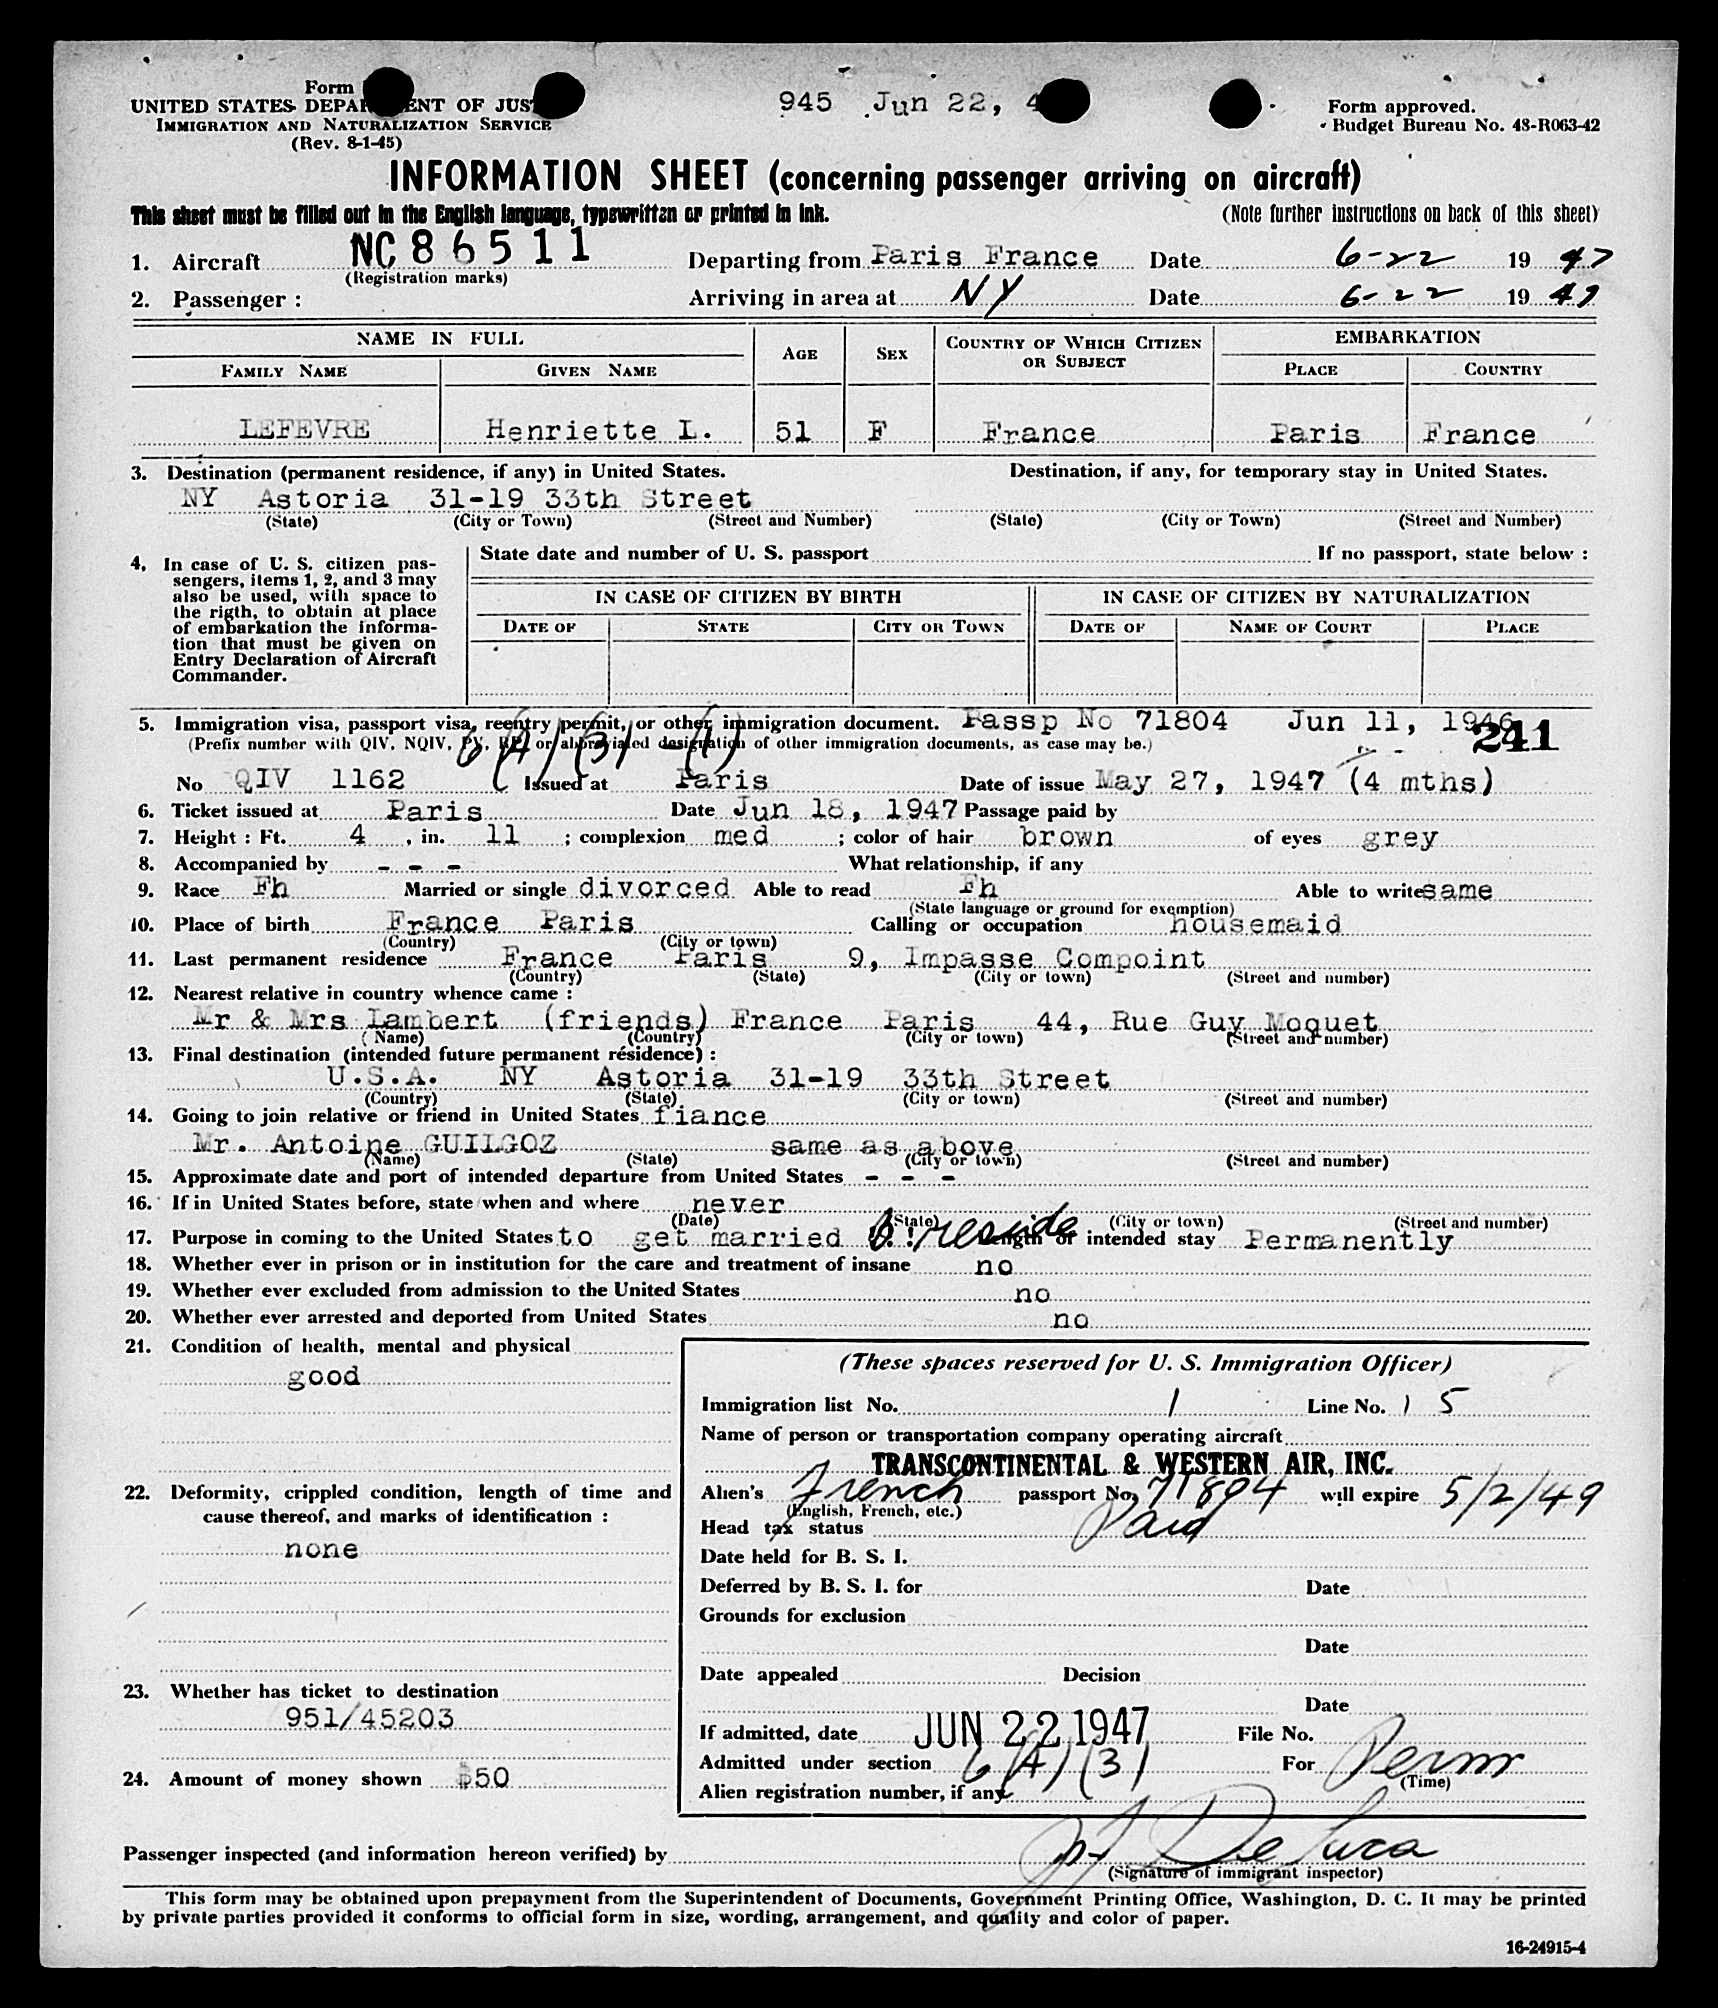 Form
UNITED STATES DEPARTMENT OF JUSTICE
IMMIGRATION AND NATURALIZATION SERVICE
(Rev. 8-1-45)
945 Jun 22, 4
Form approved.
Budget Bureau No. 43-R063-42
INFORMATION SHEET (concerning passenger arriving on aircraft)
This sheet must be filled out in the English language, typewritten or printed in ink.
(Note further instructions on back of this sheet)
1. Aircraft NC86511 Departing from Paris France Date 6-22 19 47
(Registration marks)
2. Passenger : Arriving in area at NY Date 6-22 19 47
NAME IN FULL AGE SEX COUNTRY OF WHICH CITIZEN OR SUBJECT EMBARKATION
FAMILY NAME GIVEN NAME PLACE COUNTRY
LEFEVRE Henriette L. 51 F France Paris France
3. Destination (permanent residence, if any) in United States. Destination, if any, for temporary stay in United States.
NY Astoria 31-19 33th Street
(State) (City or Town) (Street and Number) (State) (City or Town) (Street and Number)
4. In case of U. S. citizen pas-
sengers, items 1, 2, and 3 may
also be used, with space to
the rigth, to obtain at place
of embarkation the informa-
tion that must be given on
Entry Declaration of Aircraft
Commander.
State date and number of U. S. passport If no passport, state below :
IN CASE OF CITIZEN BY BIRTH IN CASE OF CITIZEN BY NATURALIZATION
DATE OF STATE CITY OR TOWN DATE OF NAME OF COURT PLACE
5. Immigration visa, passport visa, reentry permit, or other immigration document. Passp No 71804 Jun 11, 1946
(Prefix number with QIV, NQIV, PV, RP, or abbreviated designation of other immigration documents, as case may be.) 241
6(A)(3)-(1)
No QIV 1162 Issued at Paris Date of issue May 27, 1947 (4 mths)
6. Ticket issued at Paris Date Jun 18, 1947 Passage paid by
7. Height : Ft. 4 , in. 11 ; complexion med ; color of hair brown of eyes grey
8. Accompanied by - - - What relationship, if any
9. Race Fh Married or single divorced Able to read Fh Able to write same
(State language or ground for exemption)
10. Place of birth France Paris Calling or occupation housemaid
(Country) (City or town)
11. Last permanent residence France Paris 9, Impasse Compoint
(Country) (State) (City or town) (Street and number)
12. Nearest relative in country whence came :
Mr & Mrs Lambert (friends) France Paris 44, Rue Guy Moquet
(Name) (Country) (City or town) (Street and number)
13. Final destination (intended future permanent résidence) :
U.S.A. NY Astoria 31-19 33th Street
(Country) (State) (City or town) (Street and number)
14. Going to join relative or friend in United States fiance
Mr. Antoine GUILGOZ same as above
(Name) (State) (City or town) (Street and number)
15. Approximate date and port of intended departure from United States - - -
16. If in United States before, state when and where never
(Date) (State) (City or town) (Street and number)
17. Purpose in coming to the United States to get married reside Length of intended stay Permanently
18. Whether ever in prison or in institution for the care and treatment of insane no
19. Whether ever excluded from admission to the United States no
20. Whether ever arrested and deported from United States no
21. Condition of health, mental and physical
good
22. Deformity, crippled condition, length of time and
cause thereof, and marks of identification :
none
23. Whether has ticket to destination
951/45203
24. Amount of money shown $50
(These spaces reserved for U. S. Immigration Officer)
Immigration list No. 1 Line No. 15
Name of person or transportation company operating aircraft
TRANSCONTINENTAL & WESTERN AIR, INC.
Alien's French passport No. 71804 will expire 5/2/49
(English, French, etc.)
Head tax status Paid
Date held for B. S. I.
Deferred by B. S. I. for Date
Grounds for exclusion
Date
Date appealed Decision
Date
If admitted, date JUN 22 1947 File No.
Admitted under section 6(A)(3) For Perm
(Time)
Alien registration number, if any
Passenger inspected (and information hereon verified) by De Luca
(Signature of immigrant inspector)
This form may be obtained upon prepayment from the Superintendent of Documents, Government Printing Office, Washington, D. C. It may be printed
by private parties provided it conforms to official form in size, wording, arrangement, and quality and color of paper.
16-24915-4